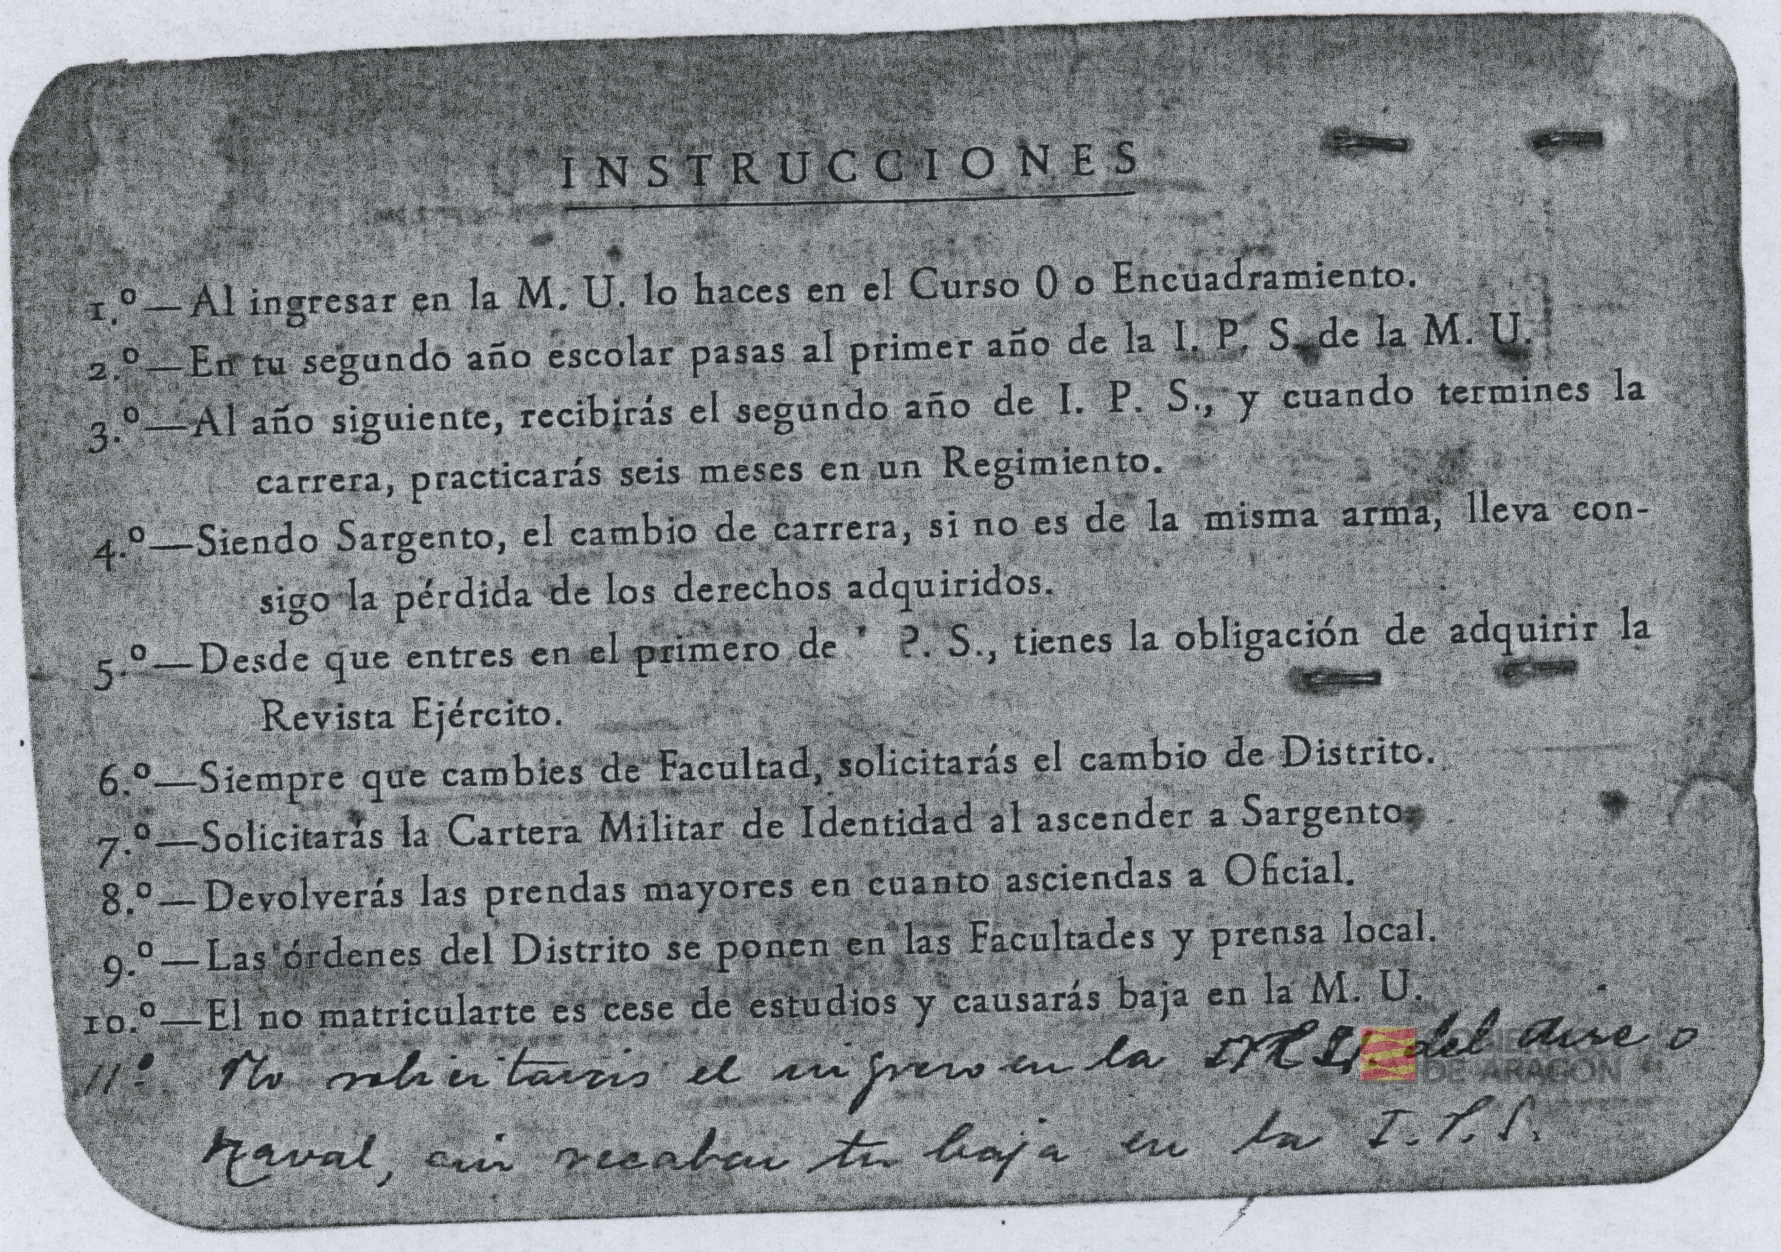 INSTRUCCIONES
1.º—Al ingresar en la M. U. lo haces en el Curso 0 o Encuadramiento.
2.º—En tu segundo año escolar pasas al primer año de la I. P. S. de la M. U.
3.º—Al año siguiente, recibirás el segundo año de I. P. S., y cuando termines la
carrera, practicarás seis meses en un Regimiento.
4.º—Siendo Sargento, el cambio de carrera, si no es de la misma arma, lleva con-
sigo la pérdida de los derechos adquiridos.
5.º—Desde que entres en el primero de P. S., tienes la obligación de adquirir la
Revista Ejército.
6.º—Siempre que cambies de Facultad, solicitarás el cambio de Distrito.
7.º—Solicitarás la Cartera Militar de Identidad al ascender a Sargento.
8.º—Devolverás las prendas mayores en cuanto asciendas a Oficial.
9.º—Las órdenes del Distrito se ponen en las Facultades y prensa local.
10.º—El no matricularte es cese de estudios y causarás baja en la M. U.
11º No solicitarás el ingreso en la del aire o
Naval, sin recabar tu baja en la I.P.S.
GOBIERNO
DE ARAGON